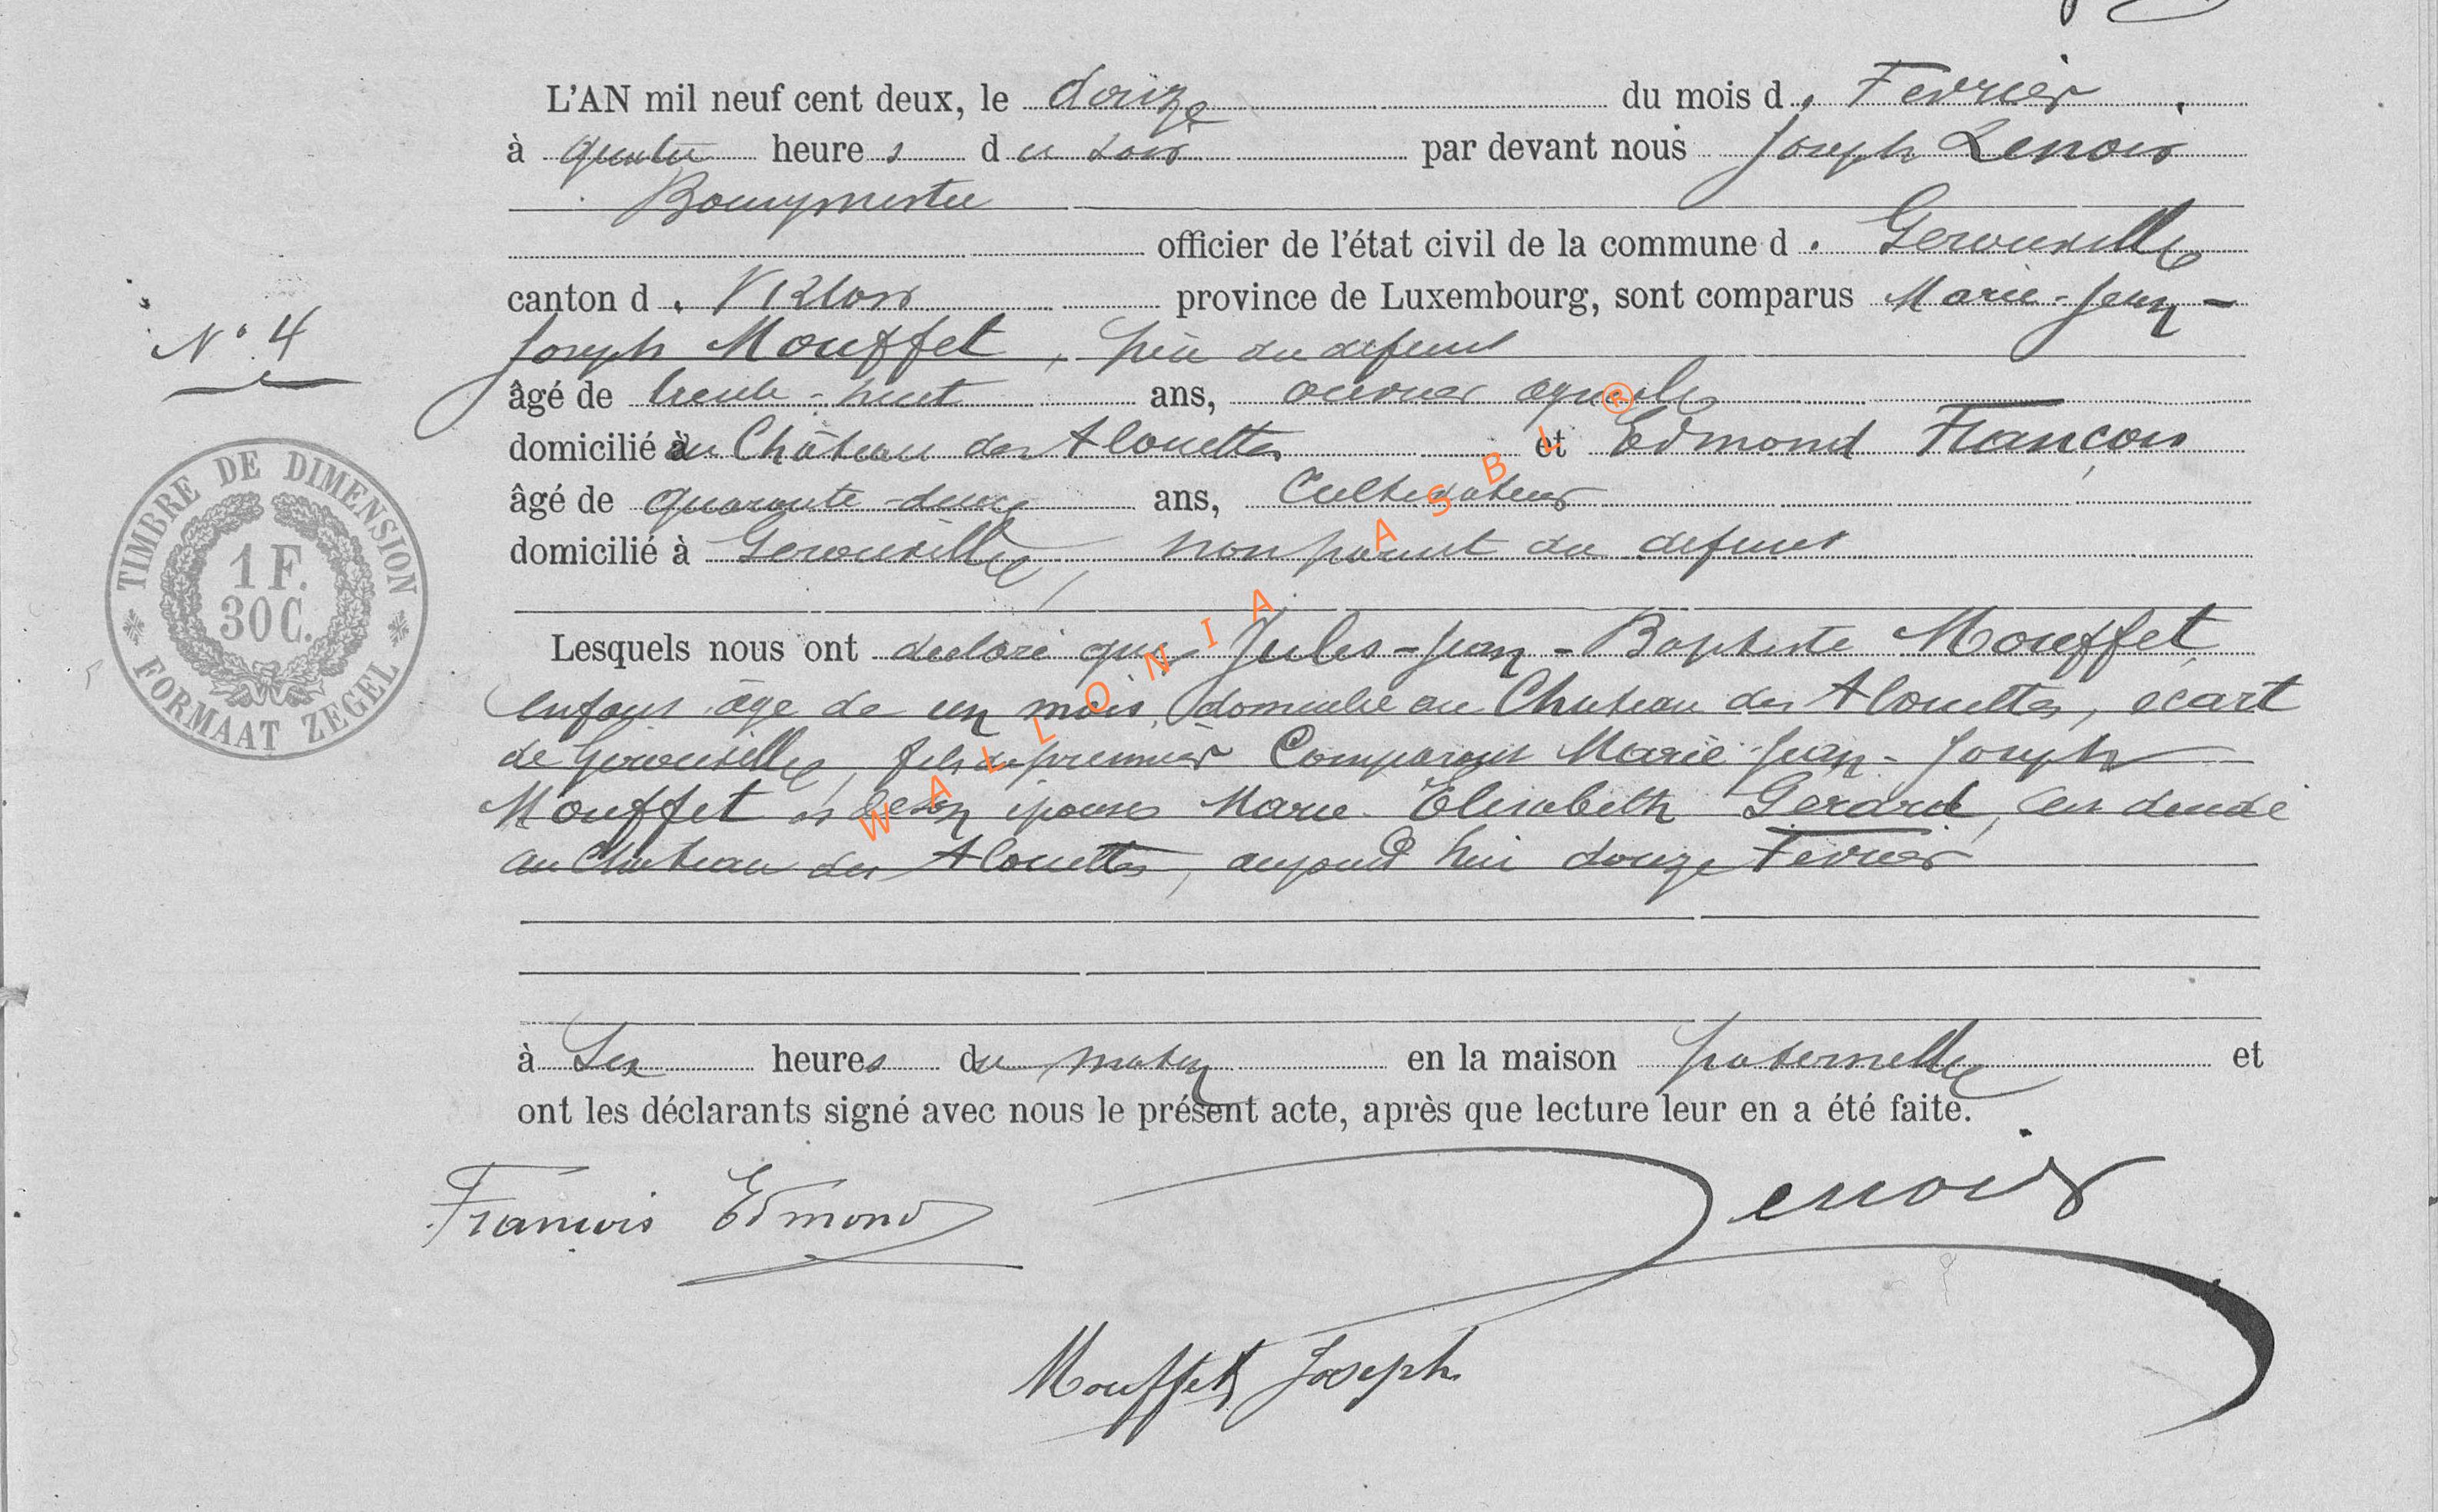 L'AN mil neuf cent deux, le douze du mois d. Fevrier
à quatre heures du soir par devant nous Joseph Lenoir
Bourgmestre
officier de l'état civil de la commune d. Gerouville
canton d. Virton province de Luxembourg, sont comparus Marie-Jean-
N° 4
Joseph Mouffet, père du defunt
âgé de trente-huit ans, ouvrier agricole
domicilié au Château des Alouettes et Edmond François
âgé de quarante-deux ans, Cultivateur
domicilié à Gerouville, non parent du defunt
Lesquels nous ont declaré que Jules-Jean-Baptiste Mouffet,
enfant âgé de un mois, domicilié au Chateau des Alouettes, ecart
de Gerouville, fils du premier Comparant Marie-Jean-Joseph
Mouffet et de son épouse Marie-Elisabeth Gerard, est decedé
au Chateau des Alouettes, aujourd'hui douze Fevrier
à Six heures du matin en la maison paternelle et
ont les déclarants signé avec nous le présent acte, après que lecture leur en a été faite.
François Edmond Lenoir
Mouffet Joseph
TIMBRE DE DIMENSION
1 F.
30 C.
FORMAAT ZEGEL
WALLONIA ASBL ®